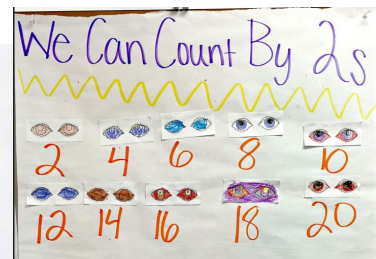 We Can Count By 2s
2 4 6 8 10
12 14 16 18 20